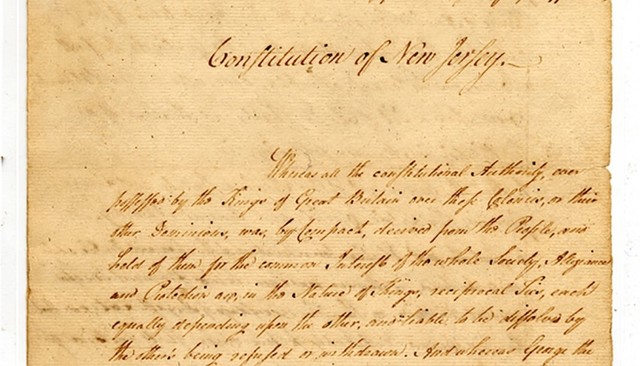 Constitution of New Jersey.
Whereas all the constitutional Authority, ever
possessed by the Kings of Great Britain over these Colonies, or their
other Dominions, was, by Compact, derived from the People, and
held of them for the common Interest of the whole Society, Allegiance
and Protection are, in the Nature of Things, reciprocal Ties, each
equally depending upon the other, and liable to be dissolved by
the other's being refused or withdrawn. And whereas George the